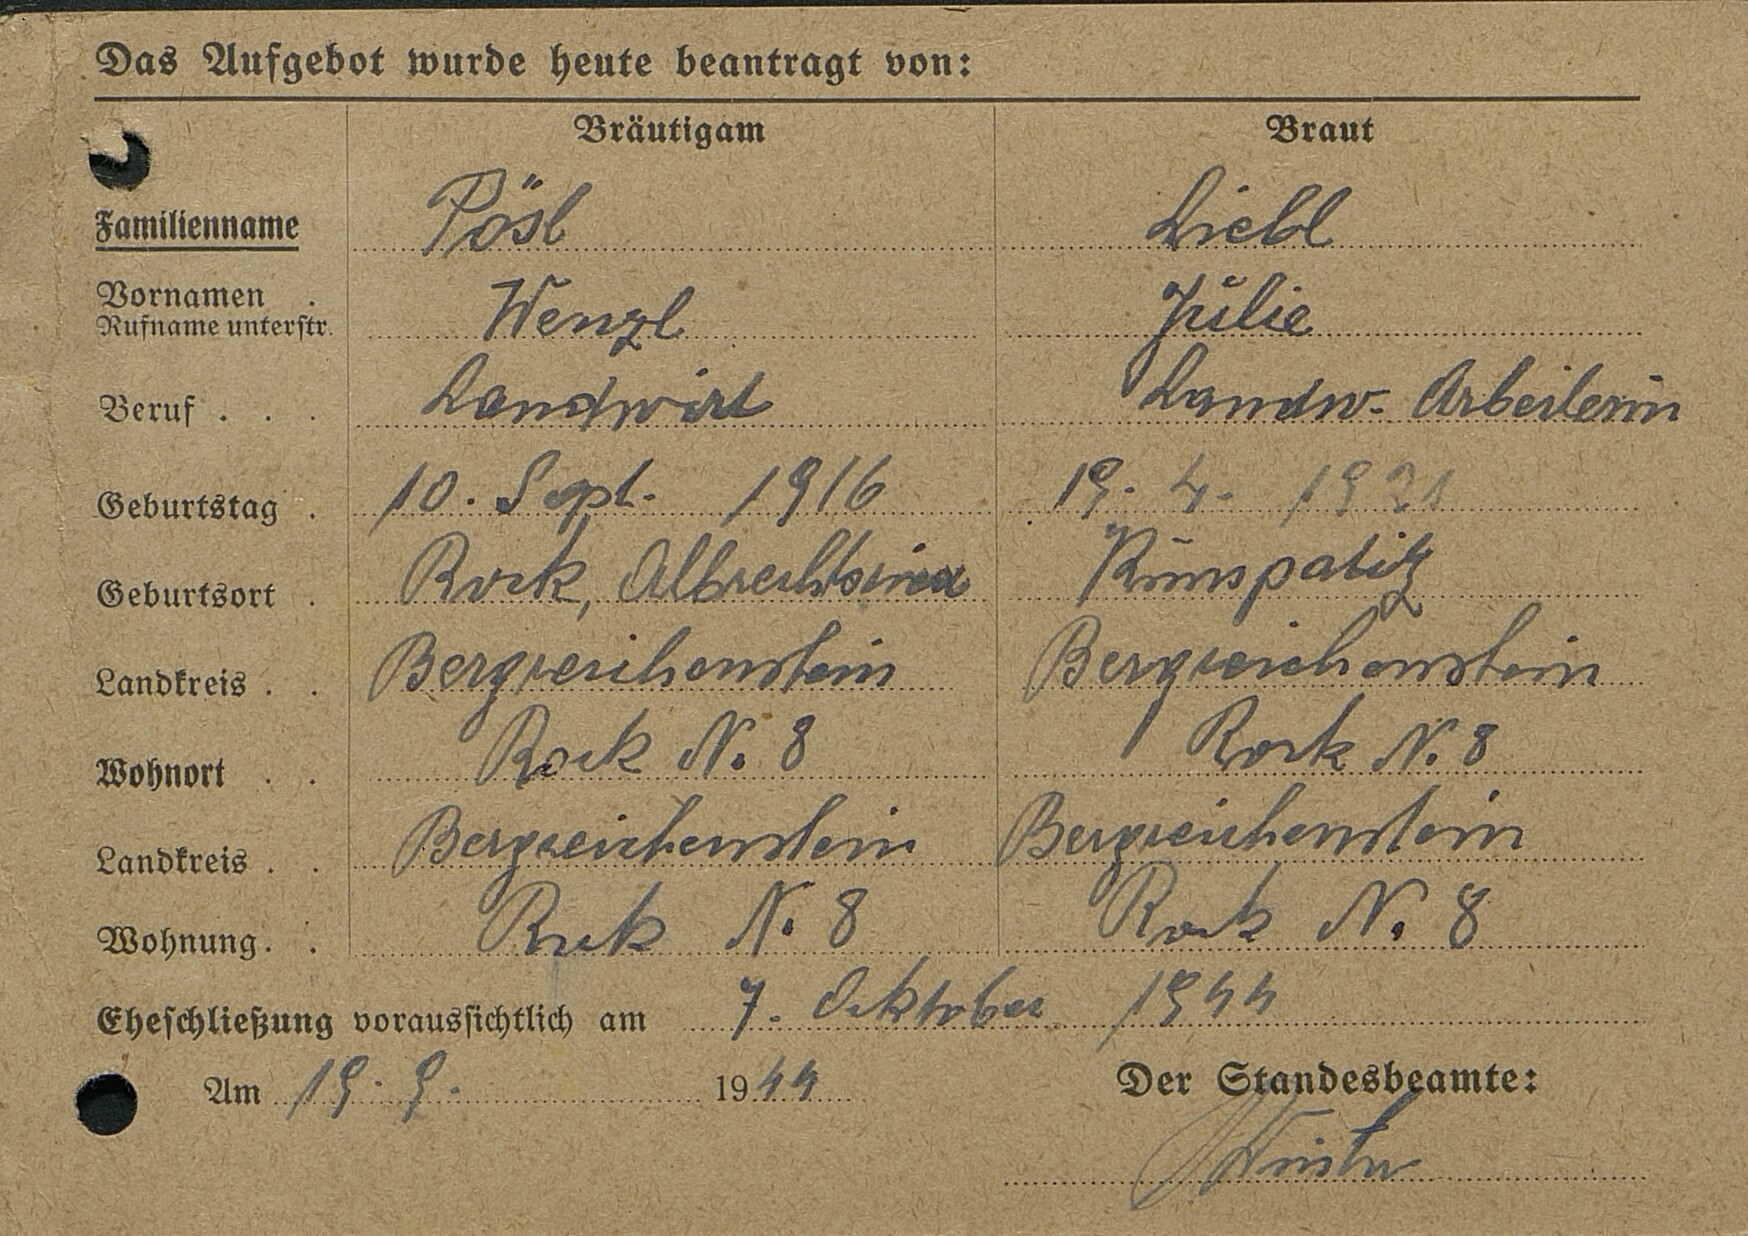 Das Aufgebot wurde heute beantragt von:
Bräutigam Braut
Familienname Pösl Liebl
Vornamen . Wenzl Julie
Rufname unterstr.
Beruf . . . Landwirt Landw. Arbeiterin
Geburtstag . 10. Sept. 1916 19. 4. 1921
Geburtsort . Rock, Albrechtsried Kunspatitz
Landkreis . . Bergreichenstein Bergreichenstein
Wohnort . . Rock N. 8 Rock N. 8
Landkreis . . Bergreichenstein Bergreichenstein
Wohnung . . Rock N. 8 Rock N. 8
Eheschließung voraussichtlich am 7. Oktober 1944
Am 19. 9. 1944 Der Standesbeamte: